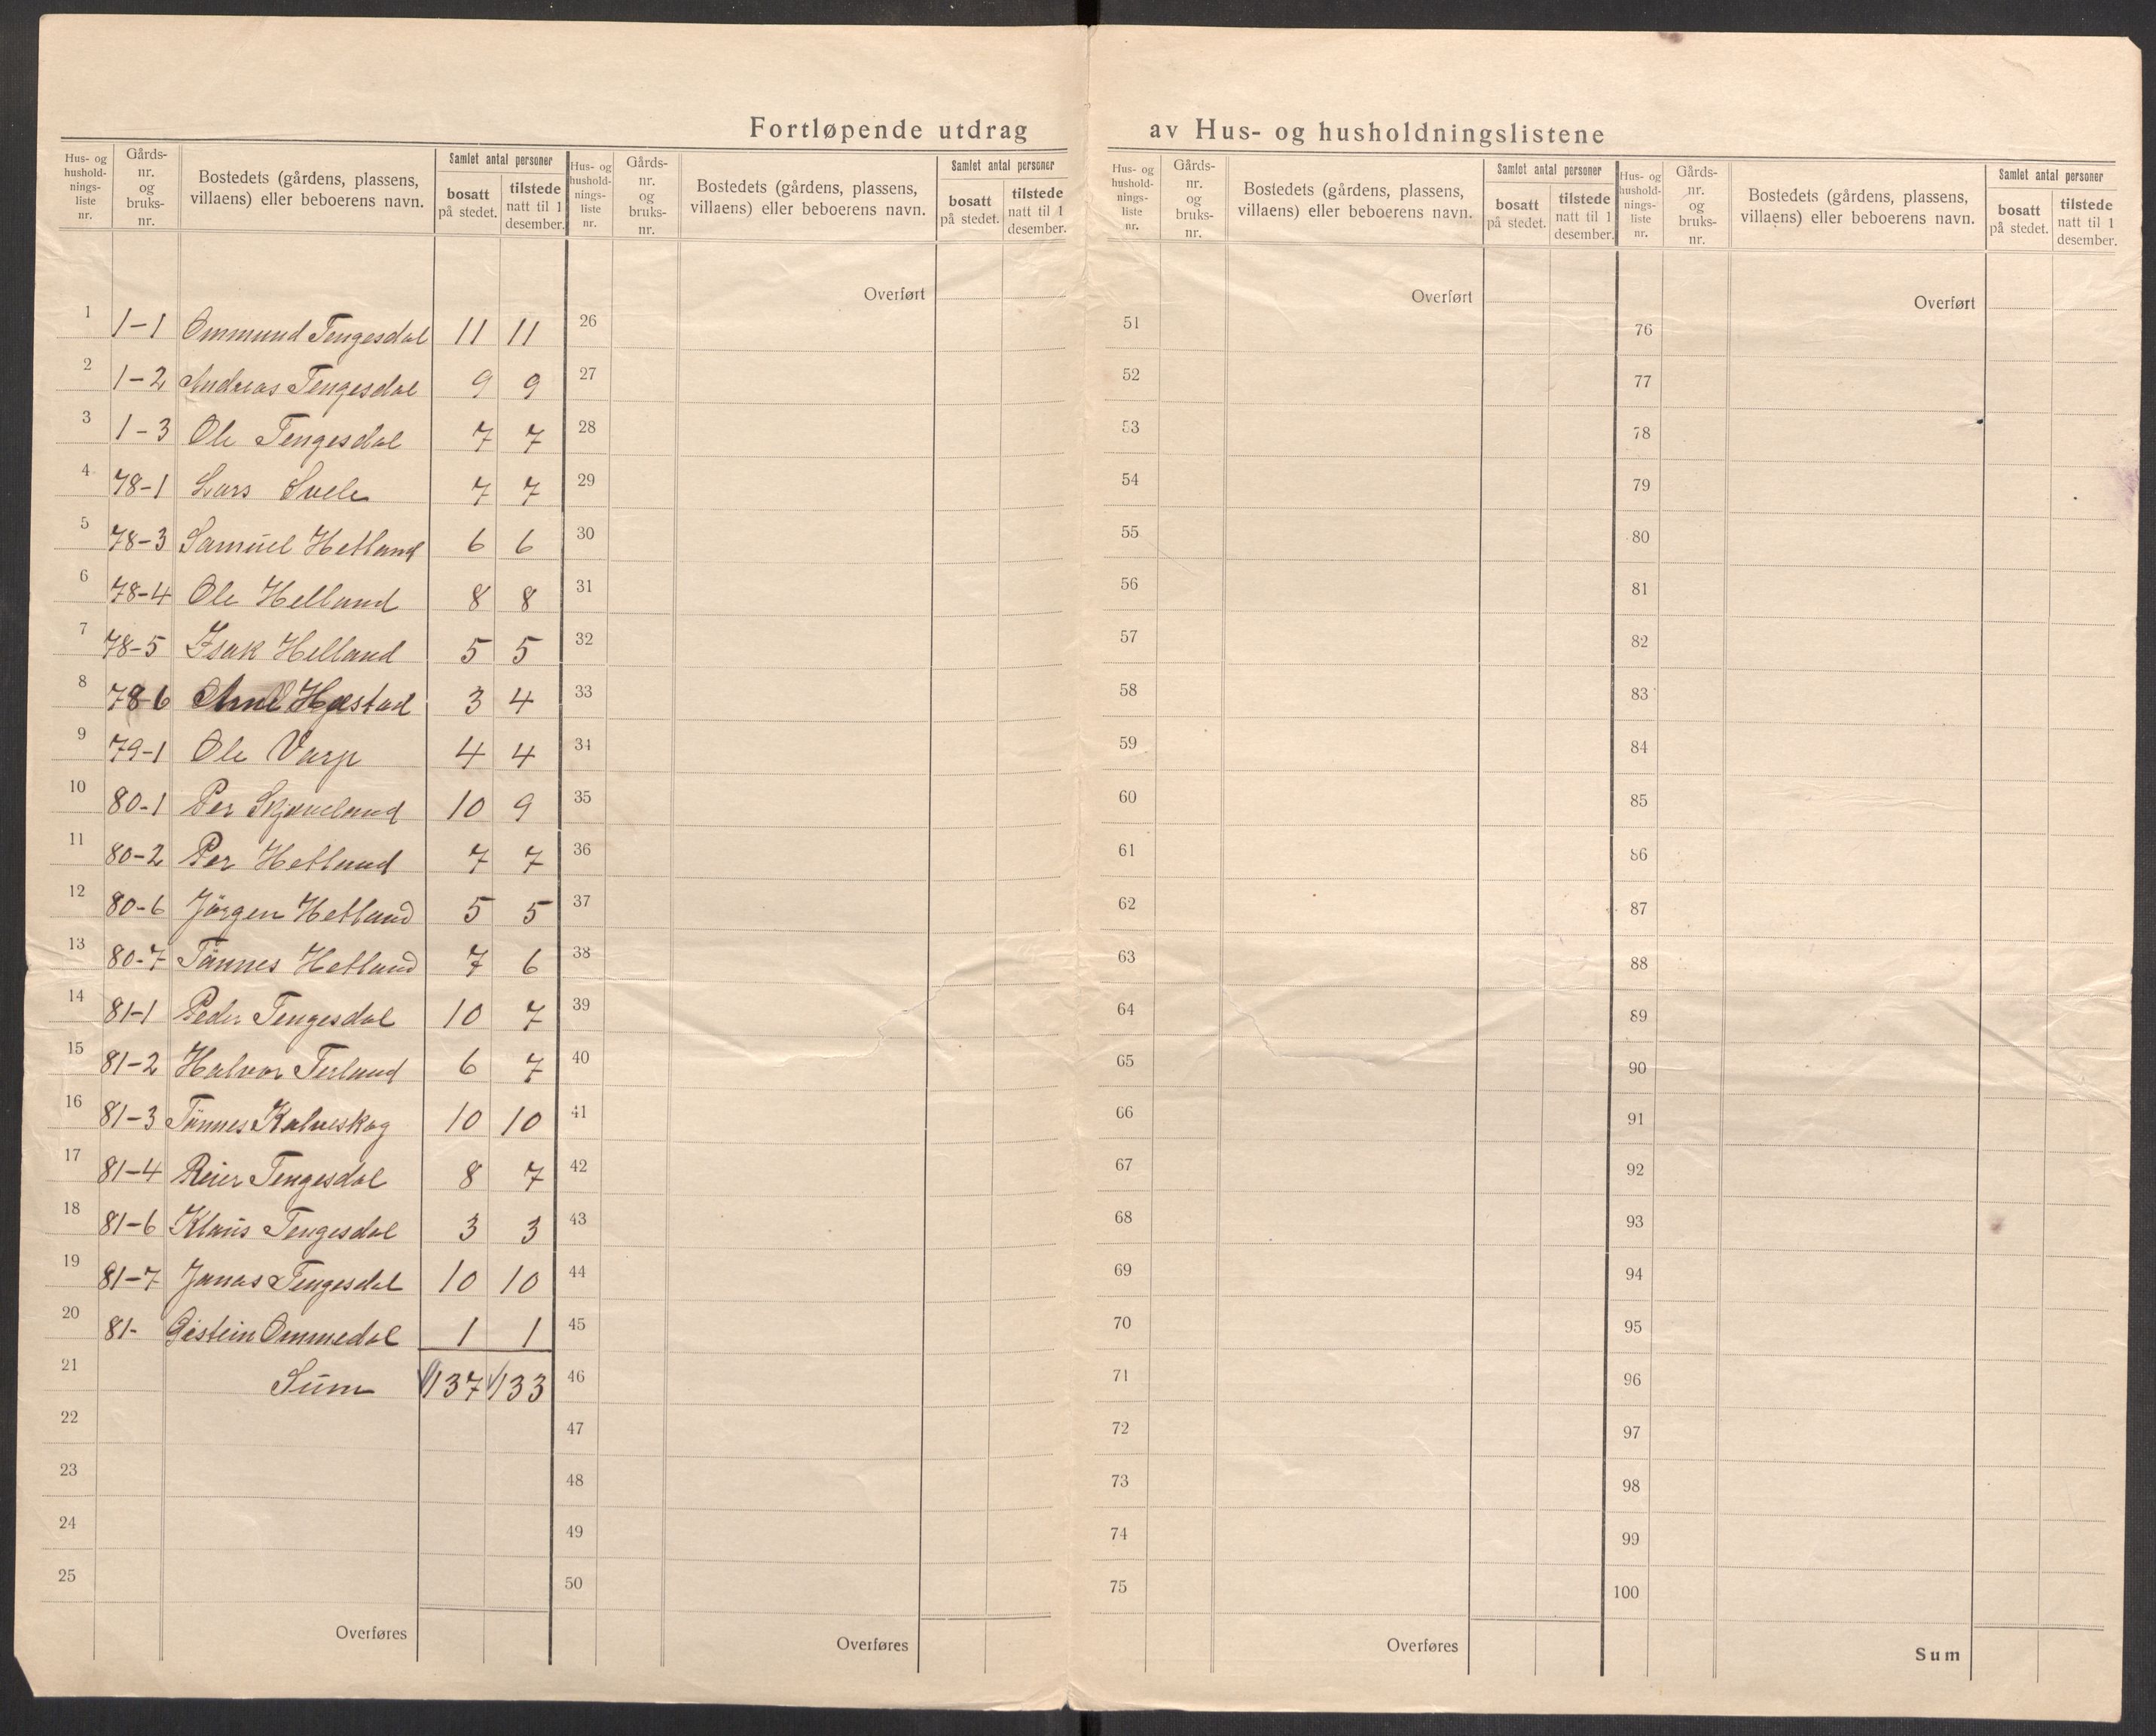 Fortløpende utdrag av Hus- og husholdningslistene
Hus- og hushold-nings-liste nr. Gårds-nr. og bruks-nr. Bostedets (gårdens, plassens, villaens) eller beboerens navn. Samlet antal personer bosatt på stedet. tilstede natt til 1 desember.
1 1-1 Ommund Tengesdal 11 11
2 1-2 Andreas Tengesdal 9 9
3 1-3 Ole Tengesdal 7 7
4 78-1 Lars Svele 7 7
5 78-3 Samuel Hetland 6 6
6 78-4 Ole Helland 8 8
7 78-5 Isak Helland 5 5
8 78-6 Hæstad 3 4
9 79-1 Ole Varp 4 4
10 80-1 Per Skjæveland 10 9
11 80-2 Per Hetland 7 7
12 80-6 Jörgen Hetland 5 5
13 80-7 Tönnes Hetland 7 6
14 81-1 Peder Tengesdal 10 7
15 81-2 Halvor Terland 6 7
16 81-3 Tönnes Kalveskog 10 10
17 81-4 Reier Tengesdal 8 7
18 81-6 Klaus Tengesdal 3 3
19 81-7 Jonas Tengesdal 10 10
20 81- Ommedal 1 1
21 Sum 137 133
22
23
24
25
Overføres
Hus- og hushold-nings-liste nr. Gårds-nr. og bruks-nr. Bostedets (gårdens, plassens, villaens) eller beboerens navn. Samlet antal personer bosatt på stedet. tilstede natt til 1 desember.
Overført
26
27
28
29
30
31
32
33
34
35
36
37
38
39
40
41
42
43
44
45
46
47
48
49
50
Overføres
Hus- og hushold-nings-liste nr. Gårds-nr. og bruks-nr. Bostedets (gårdens, plassens, villaens) eller beboerens navn. Samlet antal personer bosatt på stedet. tilstede natt til 1 desember.
Overført
51
52
53
54
55
56
57
58
59
60
61
62
63
64
65
66
67
68
69
70
71
72
73
74
75
Overføres
Hus- og hushold-nings-liste nr. Gårds-nr. og bruks-nr. Bostedets (gårdens, plassens, villaens) eller beboerens navn. Samlet antal personer bosatt på stedet. tilstede natt til 1 desember.
Overført
76
77
78
79
80
81
82
83
84
85
86
87
88
89
90
91
92
93
94
95
96
97
98
99
100
Sum